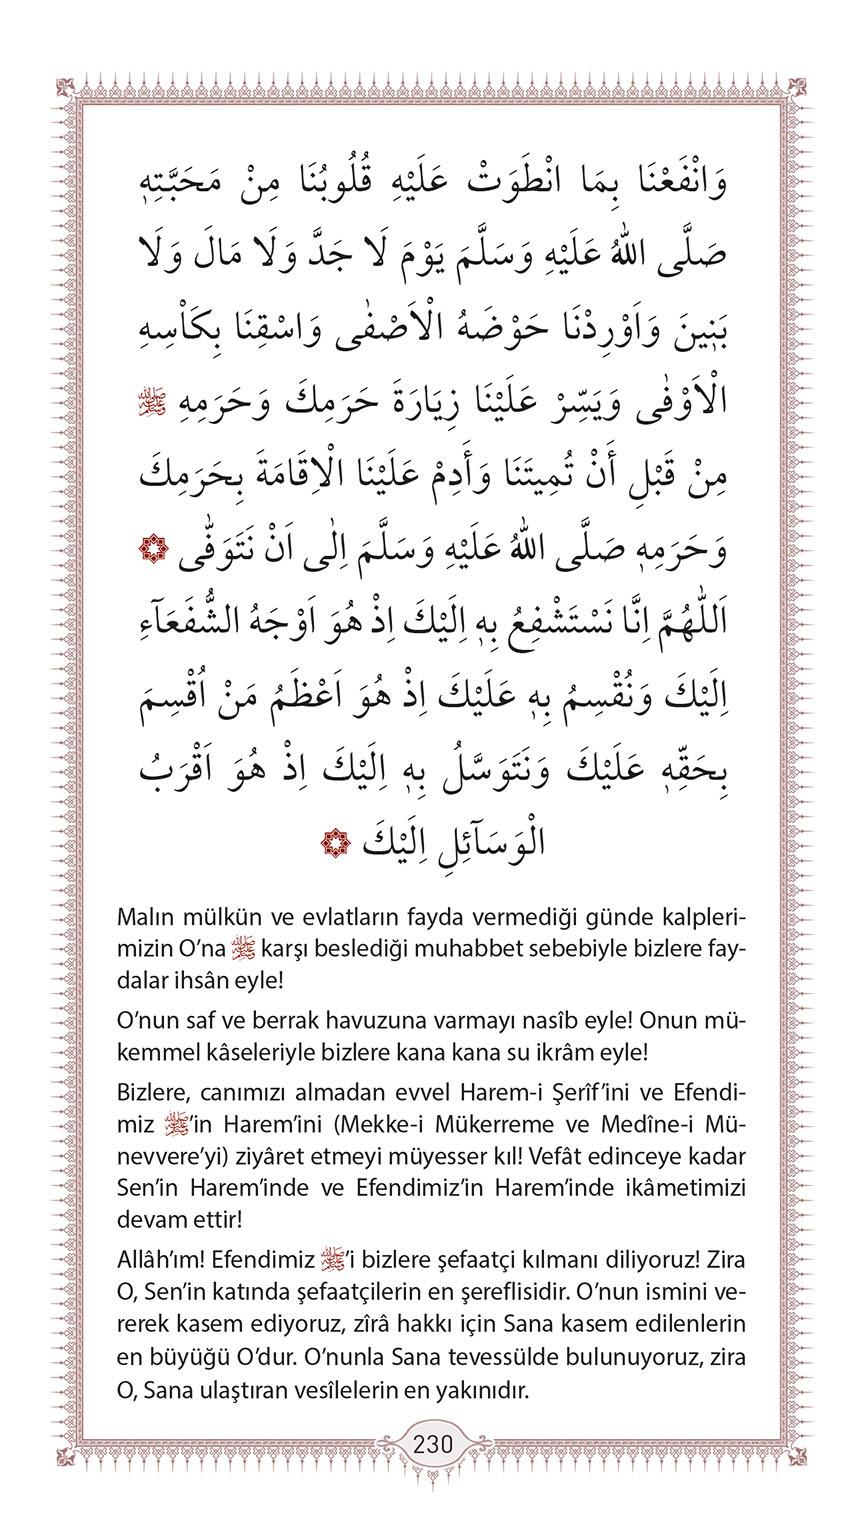 وَانْفَعْنَا بِمَا انْطَوَتْ عَلَيْهِ قُلُوبُنَا مِنْ مَحَبَّتِهٖ
صَلَّى اللّٰهُ عَلَيْهِ وَسَلَّمَ يَوْمَ لَا جَدَّ وَلَا مَالَ وَلَا
بَنٖينَ وَاَوْرِدْنَا حَوْضَهُ الْاَصْفٰى وَاسْقِنَا بِكَاْسِهِ
الْاَوْفٰى وَيَسِّرْ عَلَيْنَا زِيَارَةَ حَرَمِكَ وَحَرَمِهِ ﷺ
مِنْ قَبْلِ أَنْ تُمِيتَنَا وَأَدِمْ عَلَيْنَا الْاِقَامَةَ بِحَرَمِكَ
وَحَرَمِهٖ صَلَّى اللّٰهُ عَلَيْهِ وَسَلَّمَ اِلٰى اَنْ نَتَوَفّٰى ۞
اَللّٰهُمَّ اِنَّا نَسْتَشْفِعُ بِهٖ اِلَيْكَ اِذْ هُوَ اَوْجَهُ الشُّفَعَآءِ
اِلَيْكَ وَنُقْسِمُ بِهٖ عَلَيْكَ اِذْ هُوَ اَعْظَمُ مَنْ اُقْسِمَ
بِحَقِّهٖ عَلَيْكَ وَنَتَوَسَّلُ بِهٖ اِلَيْكَ اِذْ هُوَ اَقْرَبُ
الْوَسَآئِلِ اِلَيْكَ ۞
Malın mülkün ve evlatların fayda vermediği günde kalpleri-
mizin O’na ﷺ karşı beslediği muhabbet sebebiyle bizlere fay-
dalar ihsân eyle!
O’nun saf ve berrak havuzuna varmayı nasîb eyle! Onun mü-
kemmel kâseleriyle bizlere kana kana su ikrâm eyle!
Bizlere, canımızı almadan evvel Harem-i Şerîf’ini ve Efendi-
miz ﷺ’in Harem’ini (Mekke-i Mükerreme ve Medîne-i Mü-
nevvere’yi) ziyâret etmeyi müyesser kıl! Vefât edinceye kadar
Sen’in Harem’inde ve Efendimiz’in Harem’inde ikâmetimizi
devam ettir!
Allâh’ım! Efendimiz ﷺ’i bizlere şefaatçi kılmanı diliyoruz! Zira
O, Sen’in katında şefaatçilerin en şereflisidir. O’nun ismini ve-
rerek kasem ediyoruz, zîrâ hakkı için Sana kasem edilenlerin
en büyüğü O’dur. O’nunla Sana tevessülde bulunuyoruz, zira
O, Sana ulaştıran vesîlelerin en yakınıdır.
230